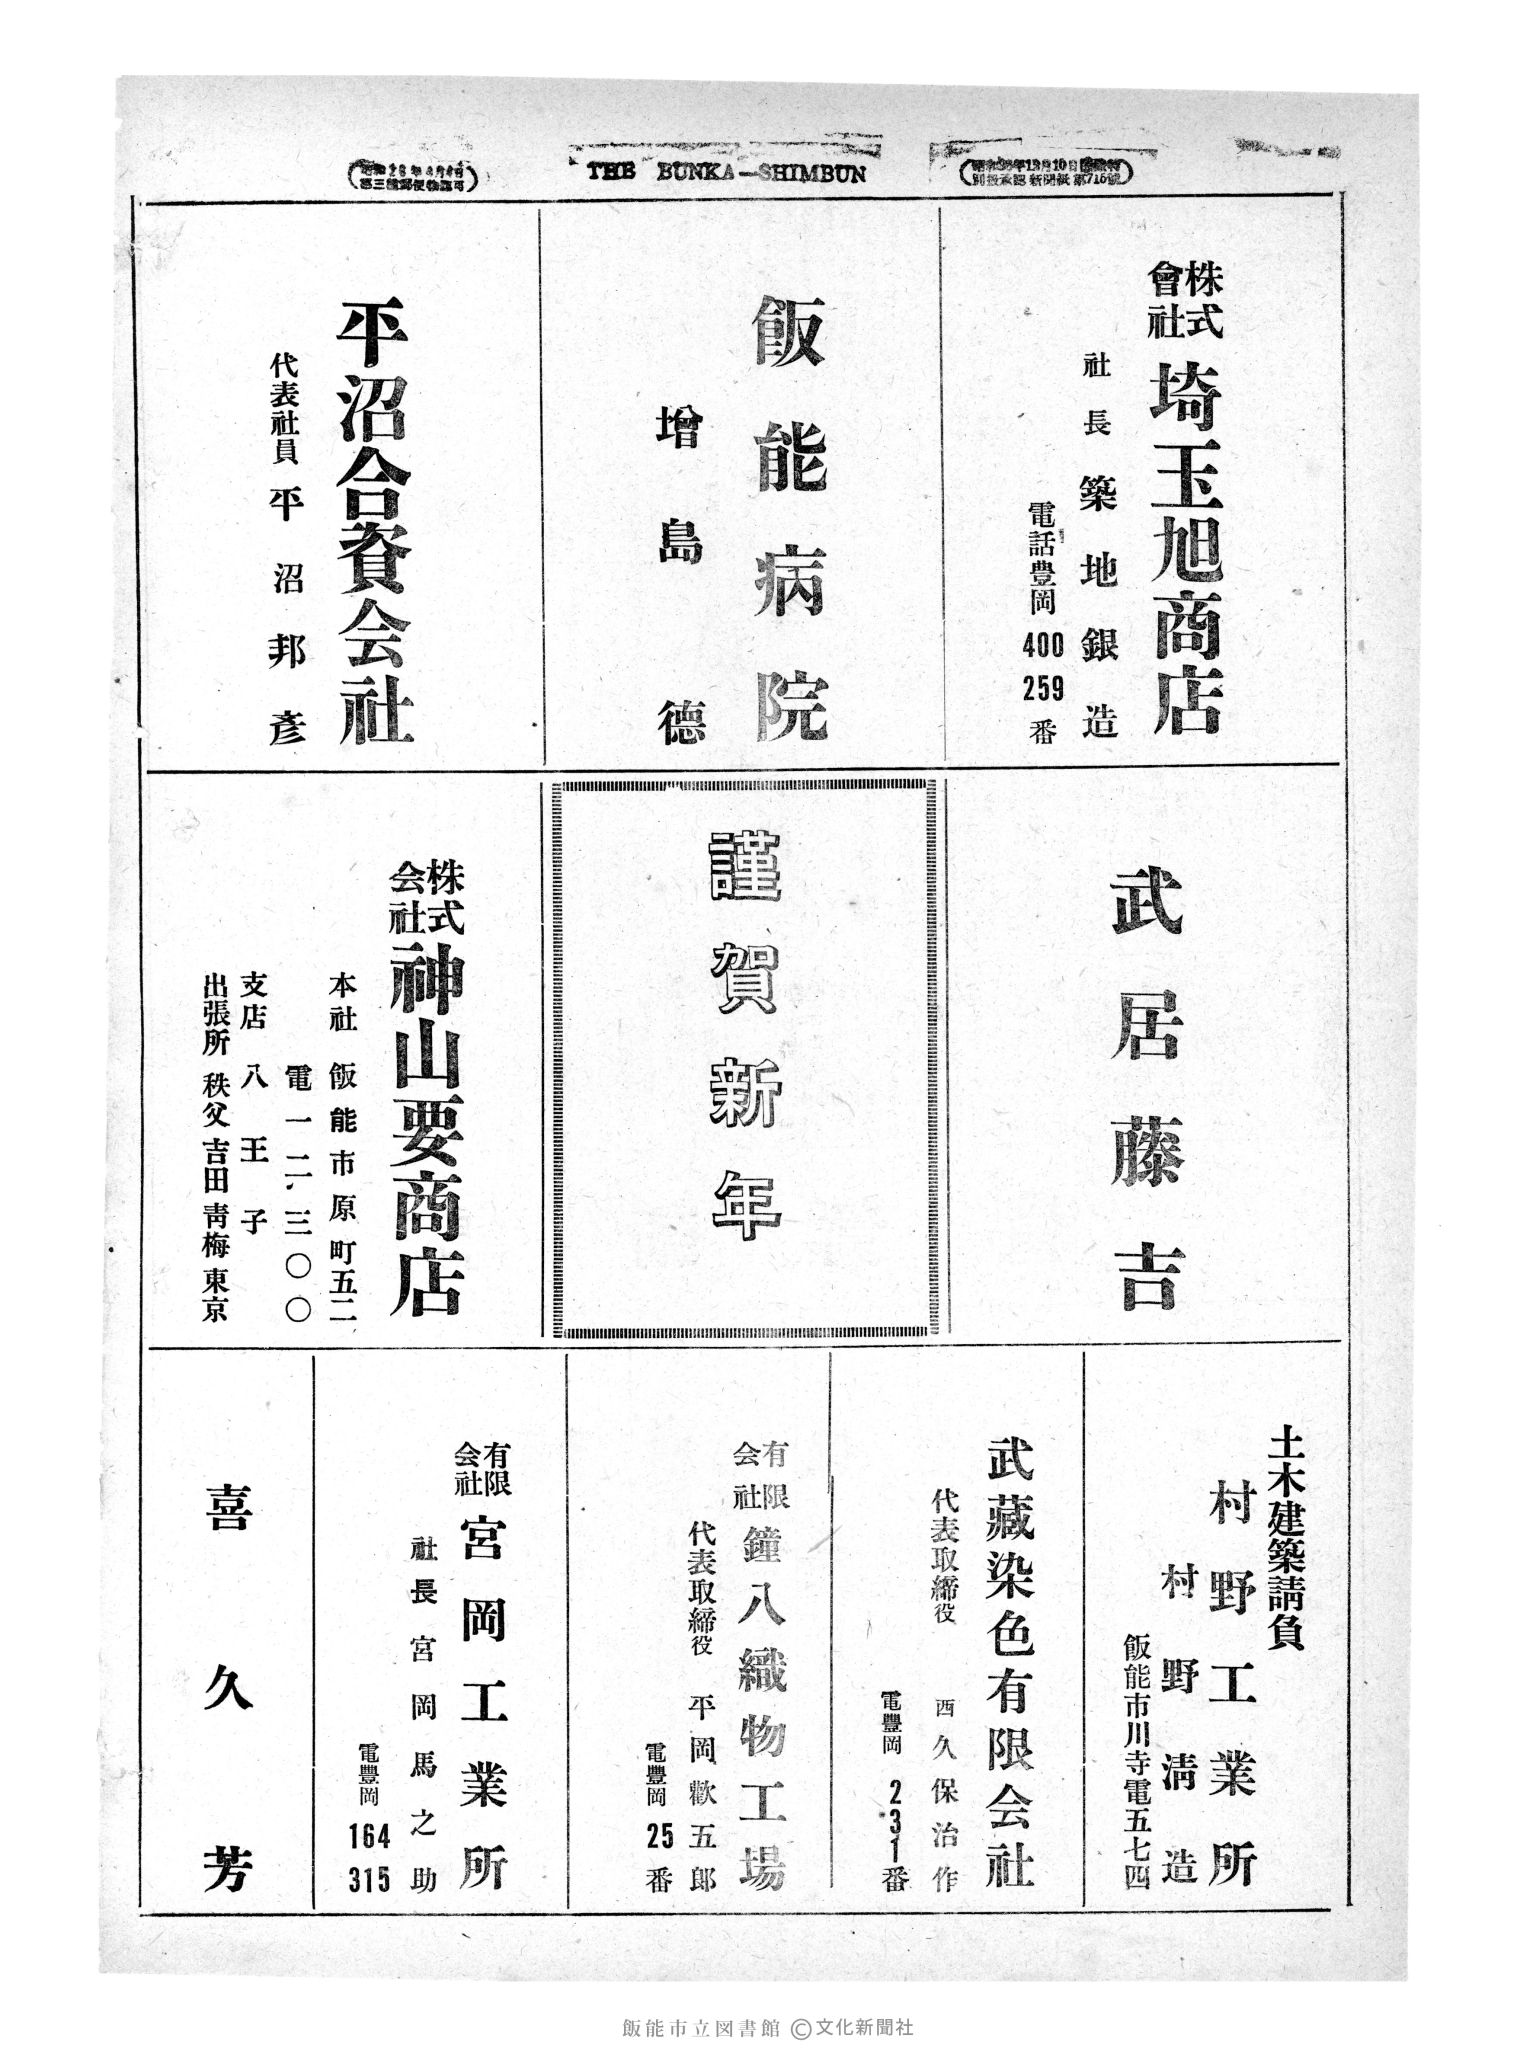 THE BUNKA—SHIMBUN
株式会社 埼玉旭商店
社長 築地銀造
電話豊岡 400 259 番
飯能病院
増島徳
平沼合資会社
代表社員 平沼邦彦
武居藤吉
謹賀新年
株式会社 神山要商店
本社 飯能市原町五二
電一二三〇〇
支店 八王子
出張所 秩父 吉田 青梅 東京
土木建築請負
村野工業所
村野清造
飯能市川寺電五七四
武藏染色有限会社
代表取締役 西久保治作
電豐岡 231番
有限会社 鐘八織物工場
代表取締役 平岡歡五郎
電豐岡 25番
有限会社 宮岡工業所
社長 宮岡馬之助
電豐岡 164 315
喜久芳
飯能市立図書館 ©文化新聞社